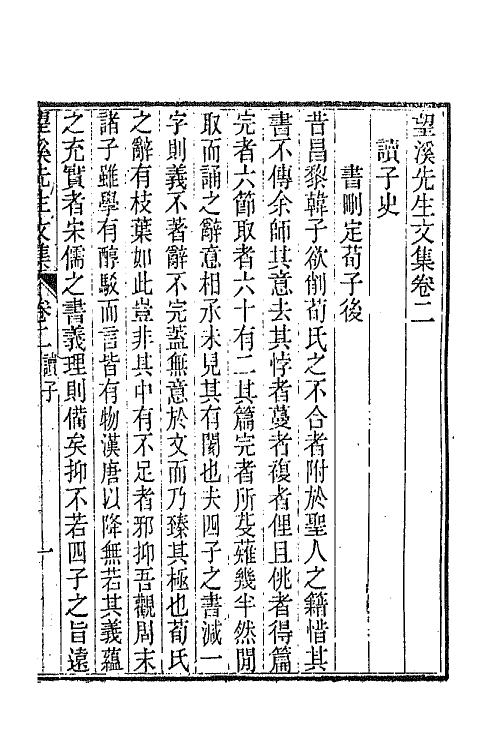 望溪先生文集卷二
讀子史
書刪定荀子後
昔昌黎韓子欲削荀氏之不合者附於聖人之籍惜其
書不傳余師其意去其悖者蔓者複者俚且佻者得篇
完者六節取者六十有二其篇完者所芟薙幾半然閒
取而誦之辭意相承未見其有闕也夫四子之書減一
字則義不著辭不完蓋無意於文而乃臻其極也荀氏
之辭有枝葉如此豈非其中有不足者邪抑吾觀周末
諸子雖學有醇駁而言皆有物漢唐以降無若其義蘊
之充實者宋儒之書義理則備矣抑不若四子之旨遠
望溪先生文集 卷二 讀子 一